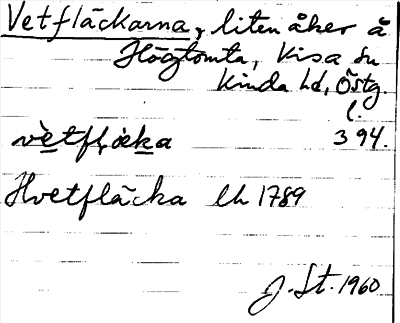 Vetfläckarna, liten åker å
Högtomta, Kisa sn
Kinda hd, Östg.
l.
vètflæka 394.
Hvetfläcka lh 1789
J. St. 1960